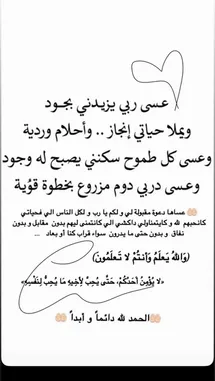 عسى ربي يزيدني بجود
ويملا حياتي إنجاز .. وأحلام وردية
وعسى كل طموح سكنني يصبح له وجود
وعسى دربي دوم مزروع بخطوة قوية
🤲🏻 عساها دعوة مقبولة لي و لكم يا رب و لكل الناس الي فحياتي
كانحبهم لله و كايتمناولي داكشي الي كانتمنى ليهم بدون مقابل و بدون
نفاق و بدون حتى ما يدرون سواء قراب كنا أو بعاد ...
(وَاللَّهُ يَعْلَمُ وَأَنتُمْ لَا تَعْلَمُونَ)
«لا يُؤْمِنُ أَحَدُكُمْ، حَتَّى يُحِبَّ لِأَخِيهِ مَا يُحِبُّ لِنَفْسِهِ»
🤲🏻الحمد لله دائماً و أبداً 🤲🏻